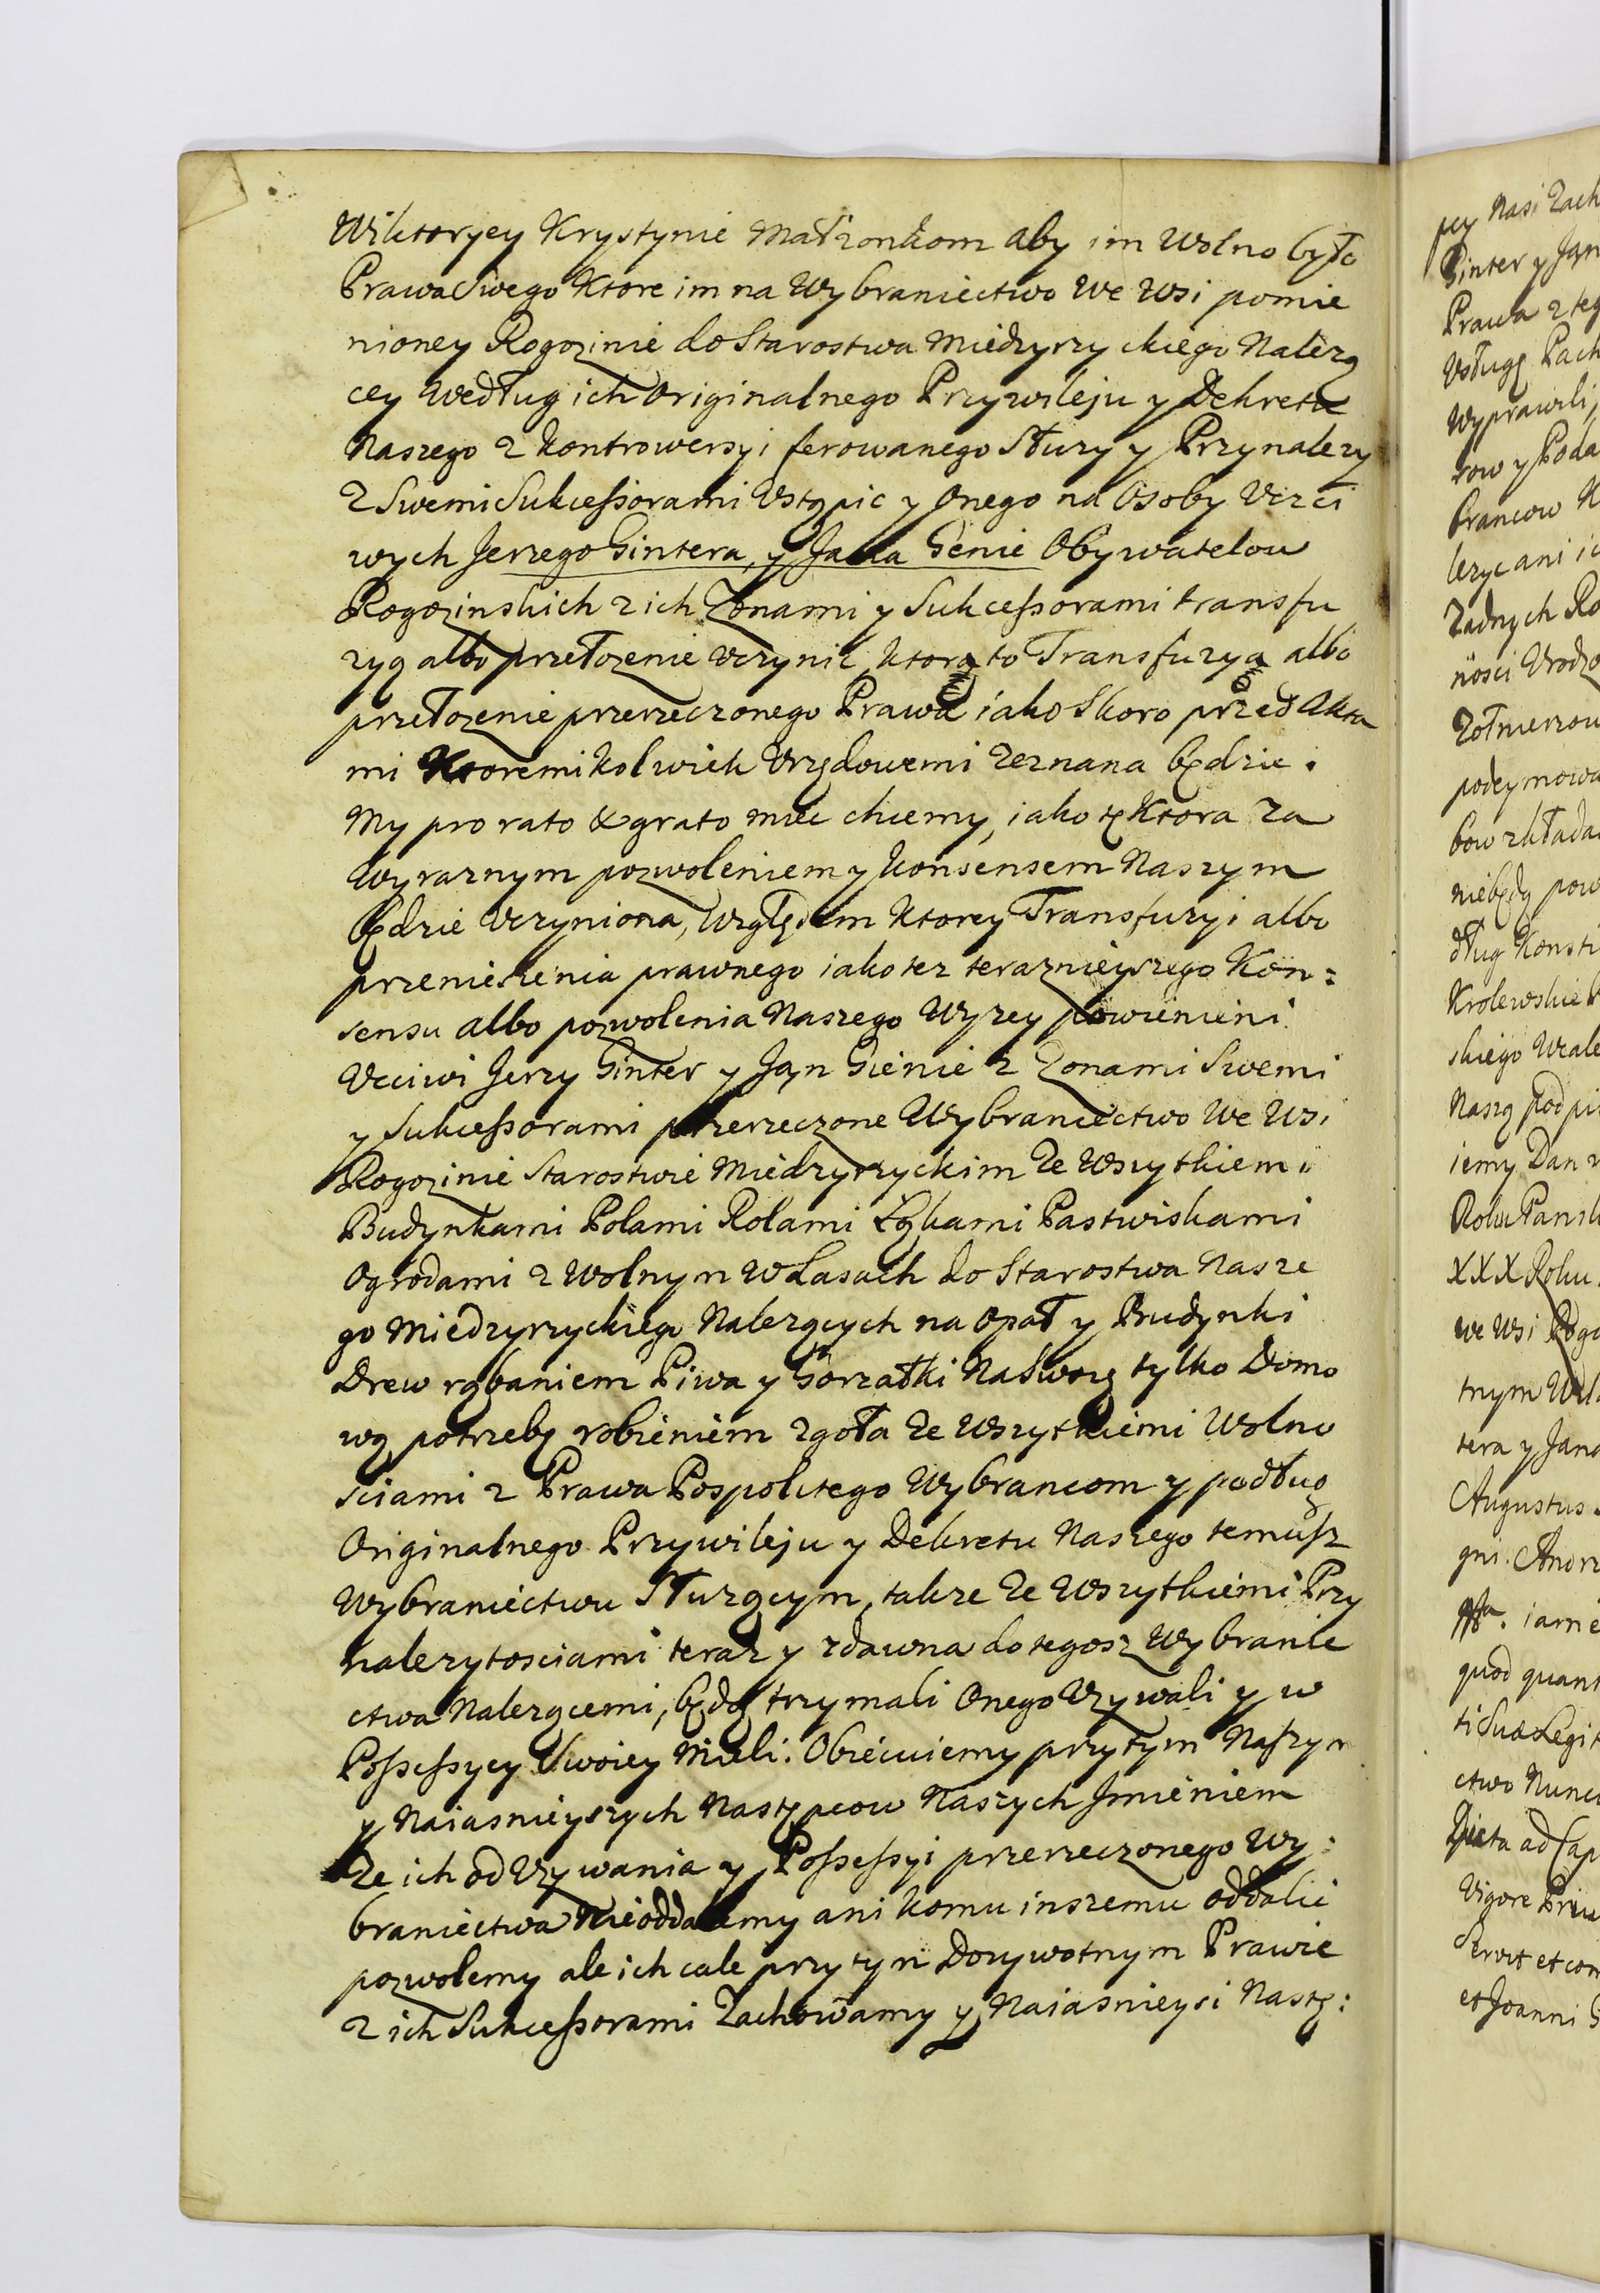 Wiktoryey Krystynie Małzonkom aby im Wolno było
Prawa Swego Ktore im na Wybraniectwo We Wsi pomie
nioney Rogozinie do Starostwa Miedzyrzyckiego Nalezą
cey Według ich Originalnego Przywileju y Dekretu
Naszego z Kontrowersyi ferowanego Słuzy y Przynalezy
z Swemi Sukceßorami Vstąpic y Onego na Osoby Vczci
wych Jerzego Gintera, y Jana Genie Obywatelow
Rogozinskich z ich Zonami y Sukceßorami transfu
zyą albo przełozenie Vczynic, ktora to Transfuzya albo
przełozenie przerzeczonego Prawa iako Skoro przed Akta
mi Ktoremikolwiek Vrzędowemi Zeznana będzie.
My pro rato & grato miec chcemy, iako tę Ktora Za
Wyraznym pozwoleniem y Konsensem Naszym
będzie Vczyniona, Względem Ktorey Transfuzyi albo
przeniesienia prawnego iako tez terazniejszego Kon:
sensu albo pozwolenia Naszego Wyzey powienieni
Vcciwi Jerzy Ginter y Jan Gienie z Zonami Swemi
y Sukceßorami przerzeczone Wybraniectwo We Wsi
Rogozinie Starostwie Miedzyrzyckim Ze Wszytkiemi
Budynkami Polami Rolami Łąkami Pastwiskami
Ogrodami z Wolnym W Lasach do Starostwa Nasze
go Miedzyrzyckiego Nalezących na Opał y Budynki
Drew rąbaniem Piwa y Gorzałki Na Swoię tylko Domo
wą potrzebę robieniem zgoła Ze Wszytkiemi Wolno
sciami z Prawa Pospolitego Wybrancom y podług
Originalnego Przywileju y Dekretu Naszego temusz
Wybraniectwu Słuzącym, takze Ze Wszytkiemi Przy
nalezytosciami teraz y zdawna do tegosz Wybranie
ctwa Nalezącemi, będą trzymali Onego Vzywali y w
Poßeßyey Swoiey Mieli. Obiecuiemy przytym Naszym
y Naiasnieyszych Następcow Naszych Jmieniem
Ze ich od Vzywania y Poßeßyi przerzeczonego Wy:
braniectwa Nieoddalemy ani komu inszemu oddalic
pozwolemy ale ich cale przy tym Dozywotnym Prawie
z ich Sukceßorami Zachowamy y Naiasnieysi Nastę:
pcy Nasi Zach
Ginter y Jan
Prawa z teg
Vsługę Pach
Wyprawili,
row y Poda
brancow N
lezyc ani i
Zadnych Ro
nosci Vrodzo
Zołnierzow
podeymowa
bow zkłada
niebędą pow
dług Konsti
Krolewskie
skiego Wcale
Naszą podpi
iemy Dan
Roku Pansk
XXX Roku
we Wsi Rogo
tnym
tera y Jana
Augustus
gni. Andrz
iam e
quod quam
ti Sua Legit
ctwo Nunc
Dicta ad Cap
Vigore Priv
Servit et con
et Joanni G